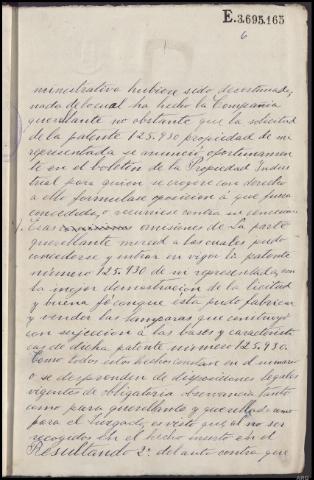 E.3.695.165
6
ministrativa hubiese sido desestimada,
nada de lo cual ha hecho la Compañia
querellante no obstante que la solicitud
de la patente 125.930 propiedad de mi
representada se anunció oportunamen
te en el boletin de la Propiedad Indus
trial para quien se creyere con derecho
a ello formulase oposición á que fuera
concedida, o recurriese contra su concesion.
Esas omisiones de la parte
querellante merced a las cuales pudo
concederse y entrar en vigor la patente
número 125.930 de mi representada, son
la mejor demostración de la licitud
y buena fé con que esta pudo fabricar
y vender las lamparas que construyó
con sujeccion á las bases y caracteristi
cas de dicha patente número 125.930.
Como todos estos hechos constan en el sumario
o se desprenden de disposiciones legales
vigentes de obligatoria observancia tanto
como para querellante y querellado como
para el Juzgado, es visto que al no ser
recogidos en el hecho inserto en el
Resultando 2º del auto contra que